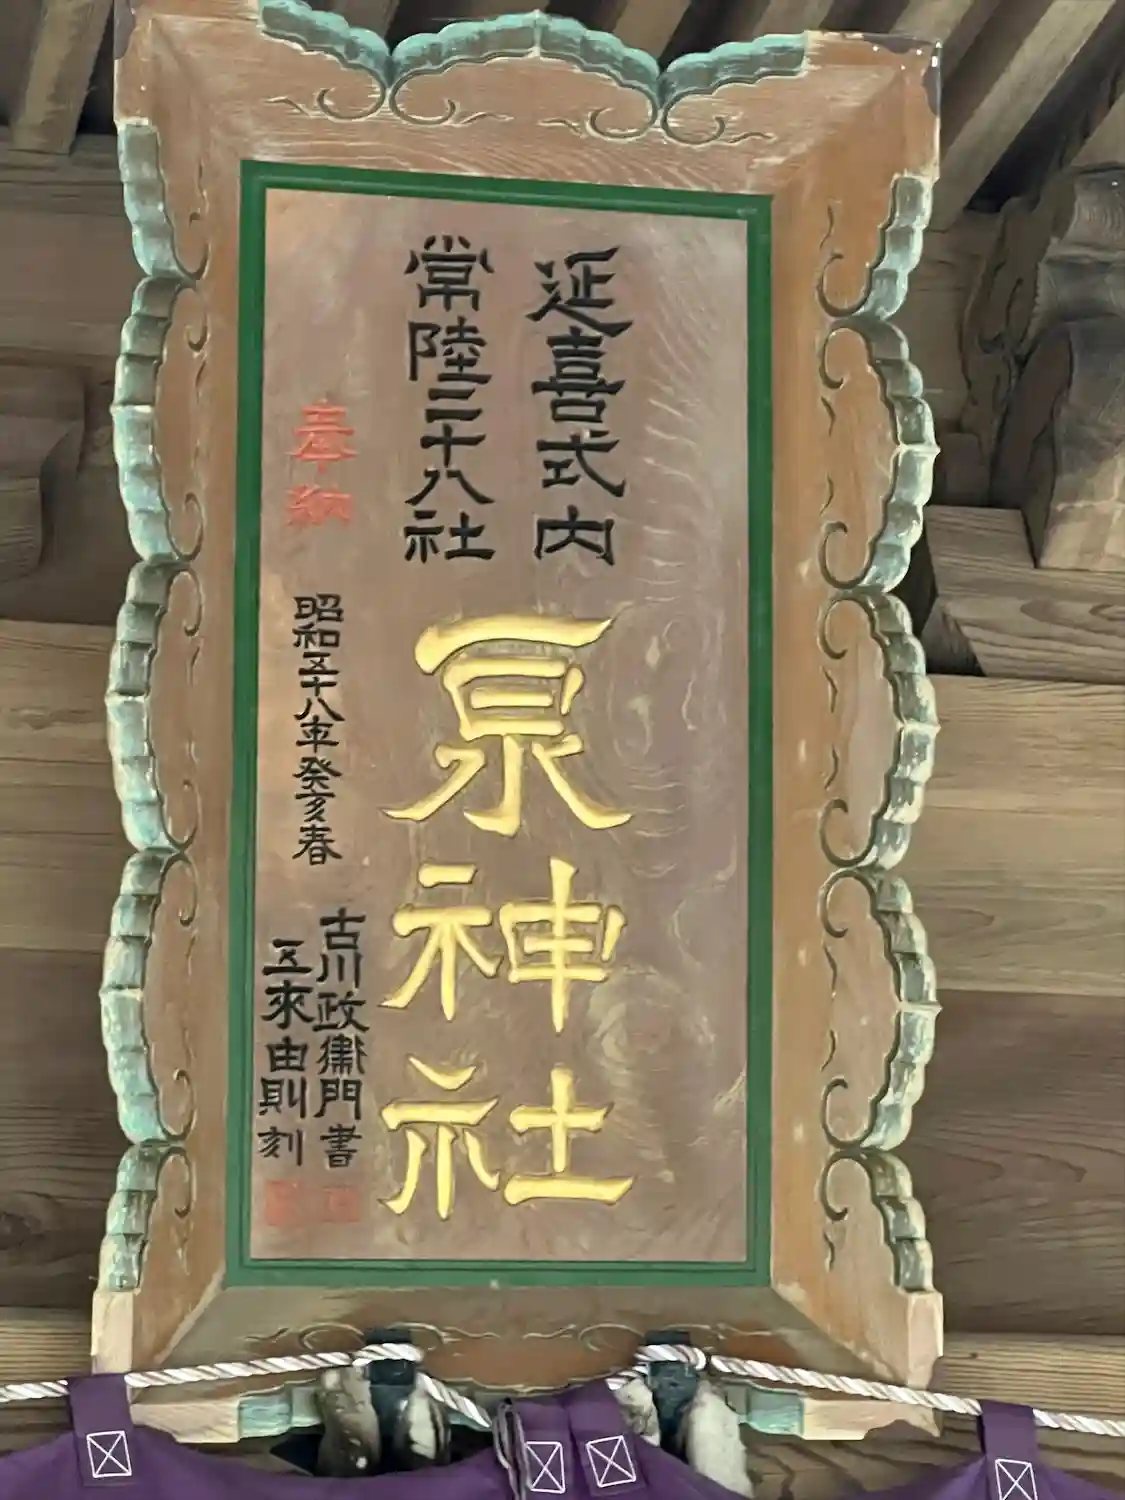 延喜式内
常陸二十八社
泉神社
奉納
昭和五十八年癸亥春
古川政衞門書
五來由則刻